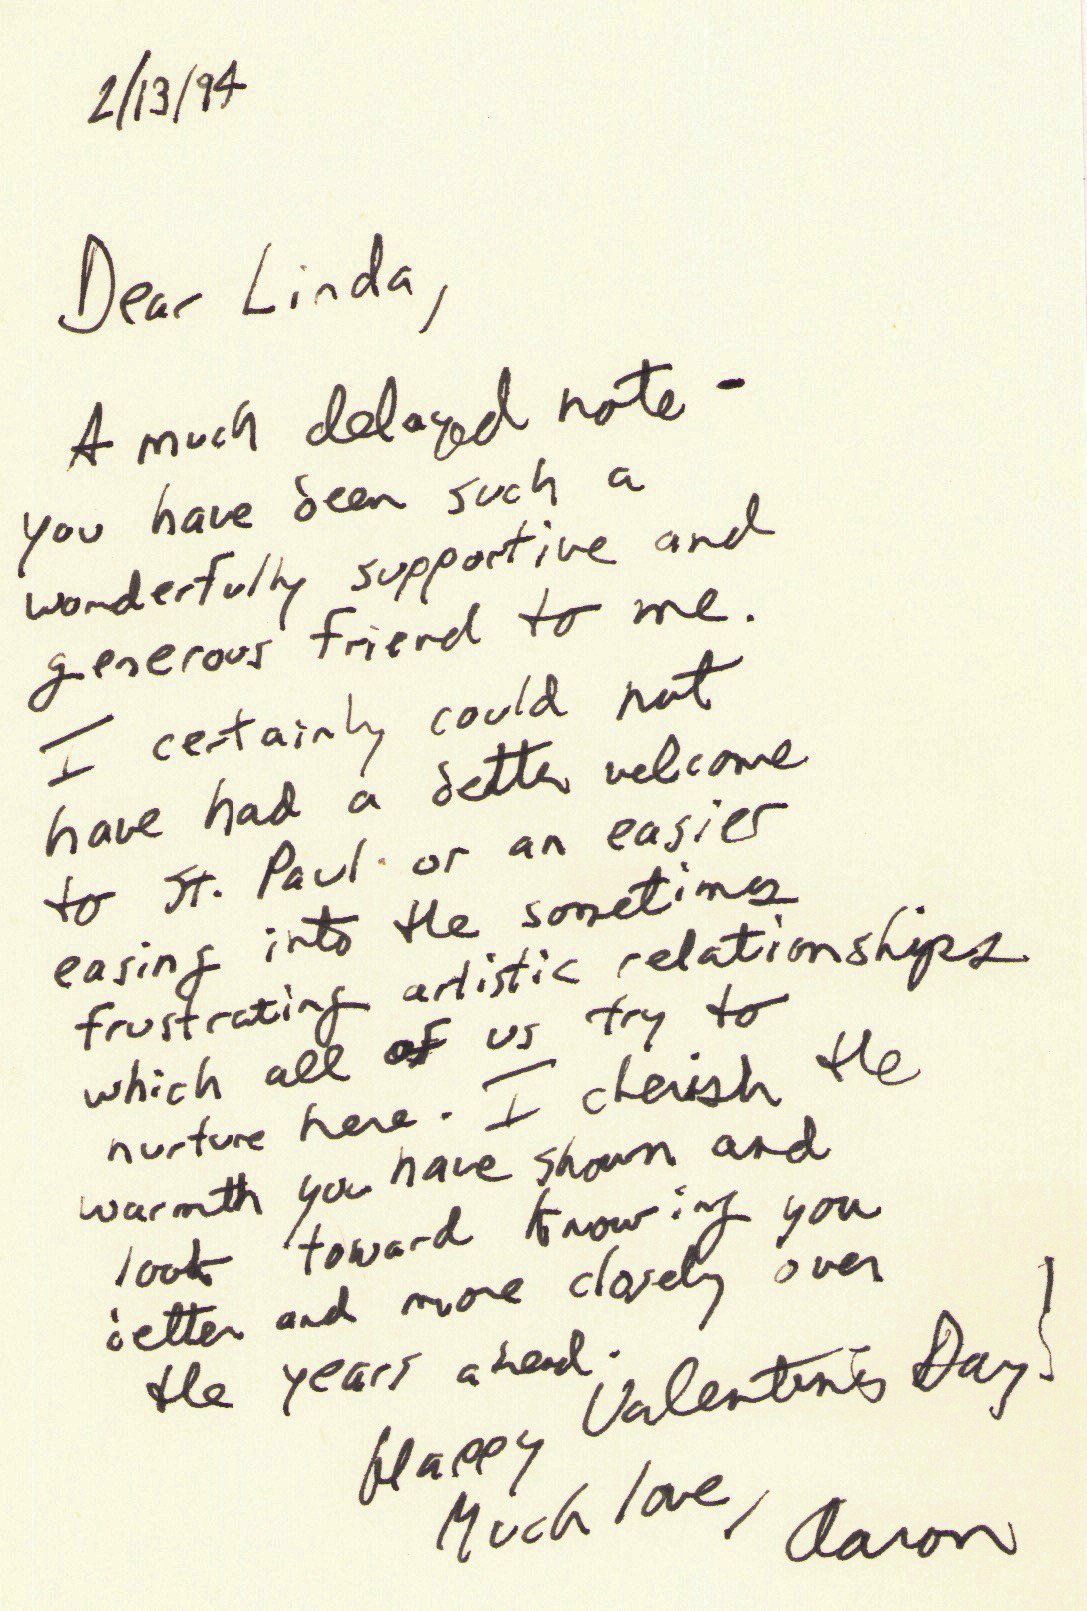 2/13/94
Dear Linda,
A much delayed note -
you have been such a
wonderfully supportive and
generous friend to me.
I certainly could not
have had a better welcome
to St. Paul or an easier
easing into the sometimes
frustrating artistic relationships
which all of us try to
nurture here. I cherish the
warmth you have shown and
look toward knowing you
better and more closely over
the years ahead.
Happy Valentine's Day!
Much love, Aaron